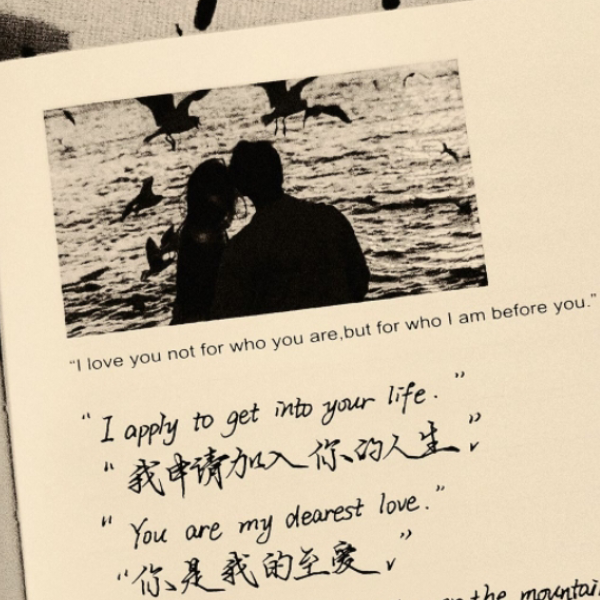 "I love you not for who you are,but for who I am before you."
"I apply to get into your life."
"我申请加入你的人生."
"You are my dearest love."
"你是我的至爱."
the mountain